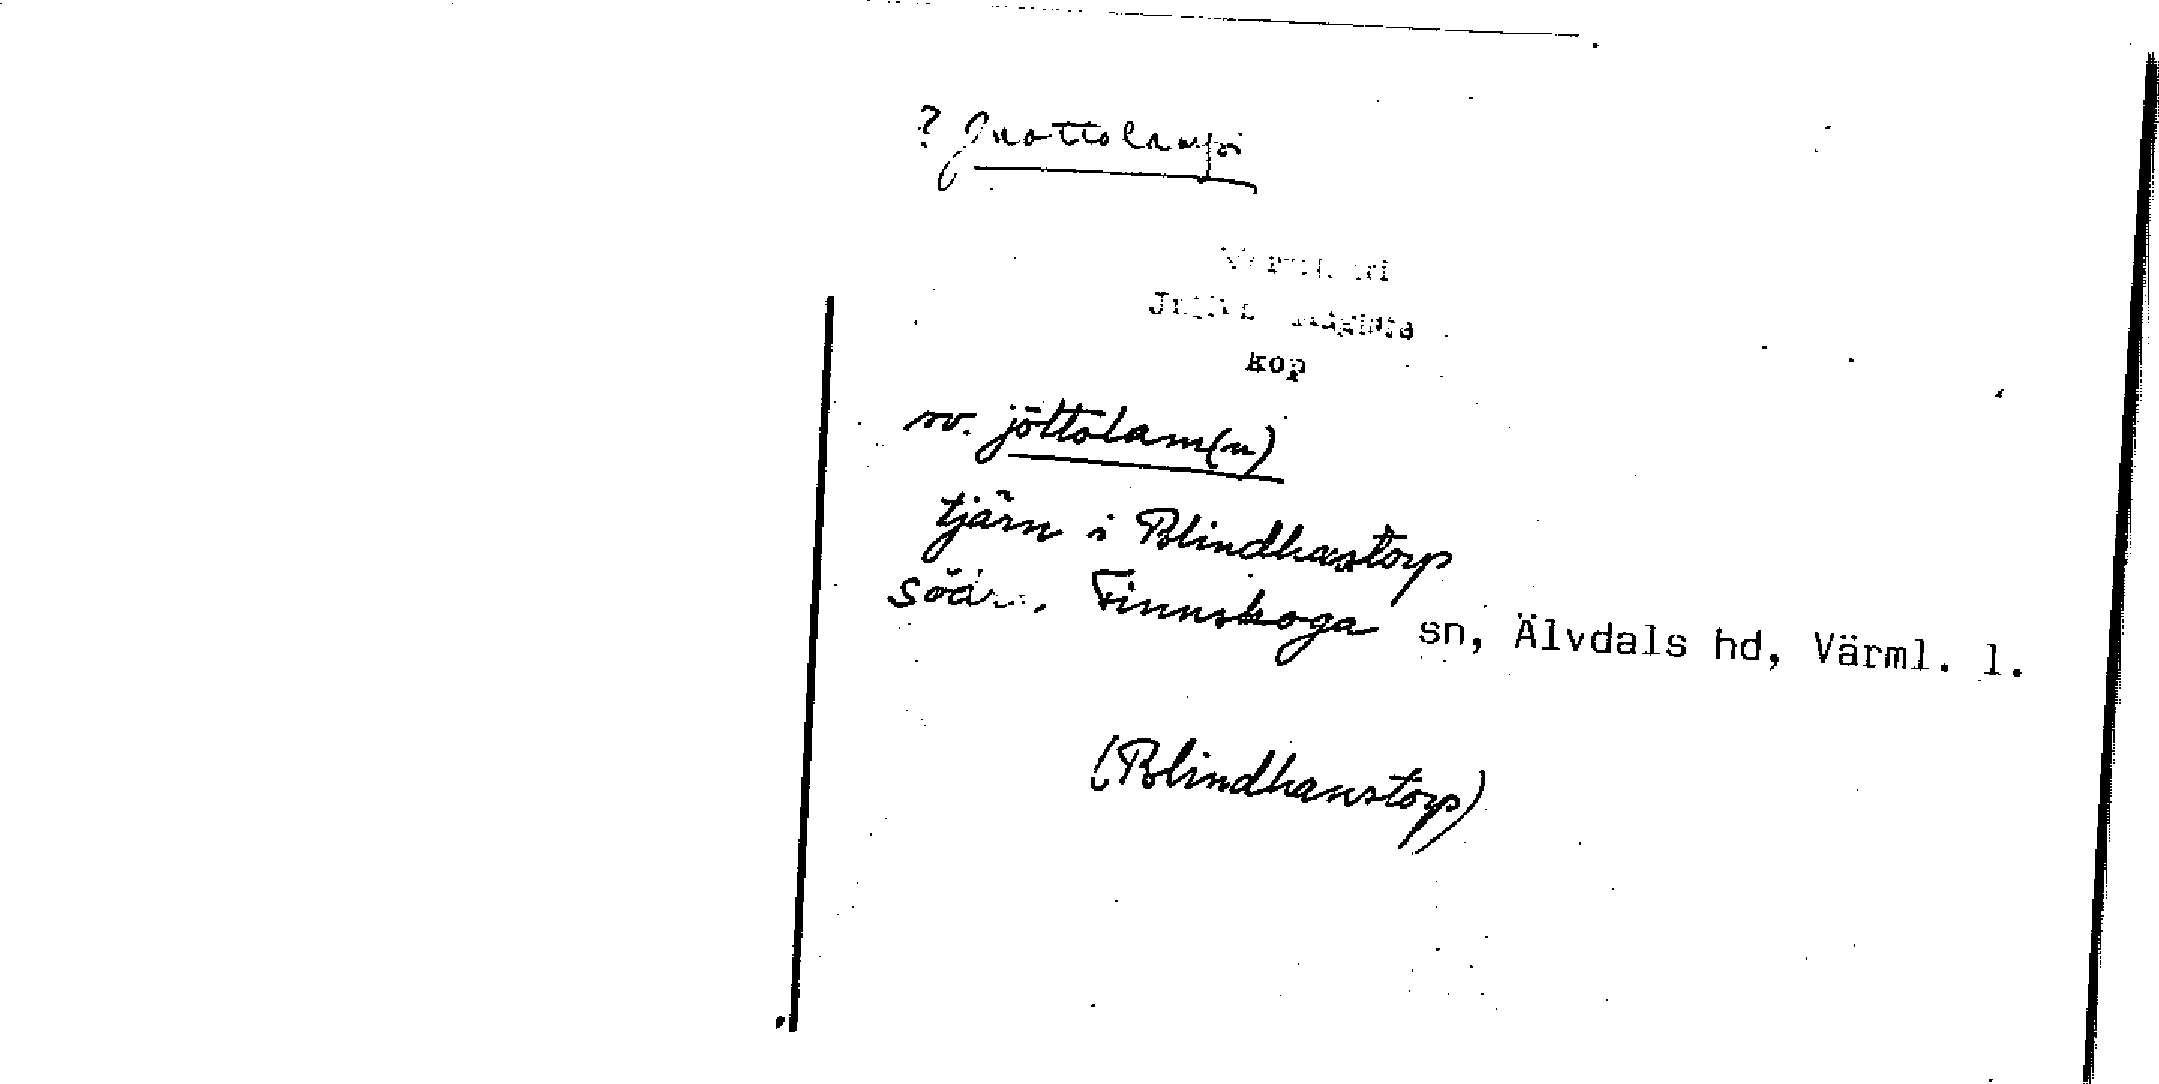 ? Juottolampi
kop
sv. jöttölam(n)
tjärn i Blindhanstorp
Södra Finnskoga sn, Älvdals hd, Värml. l.
(Blindhanstorp)